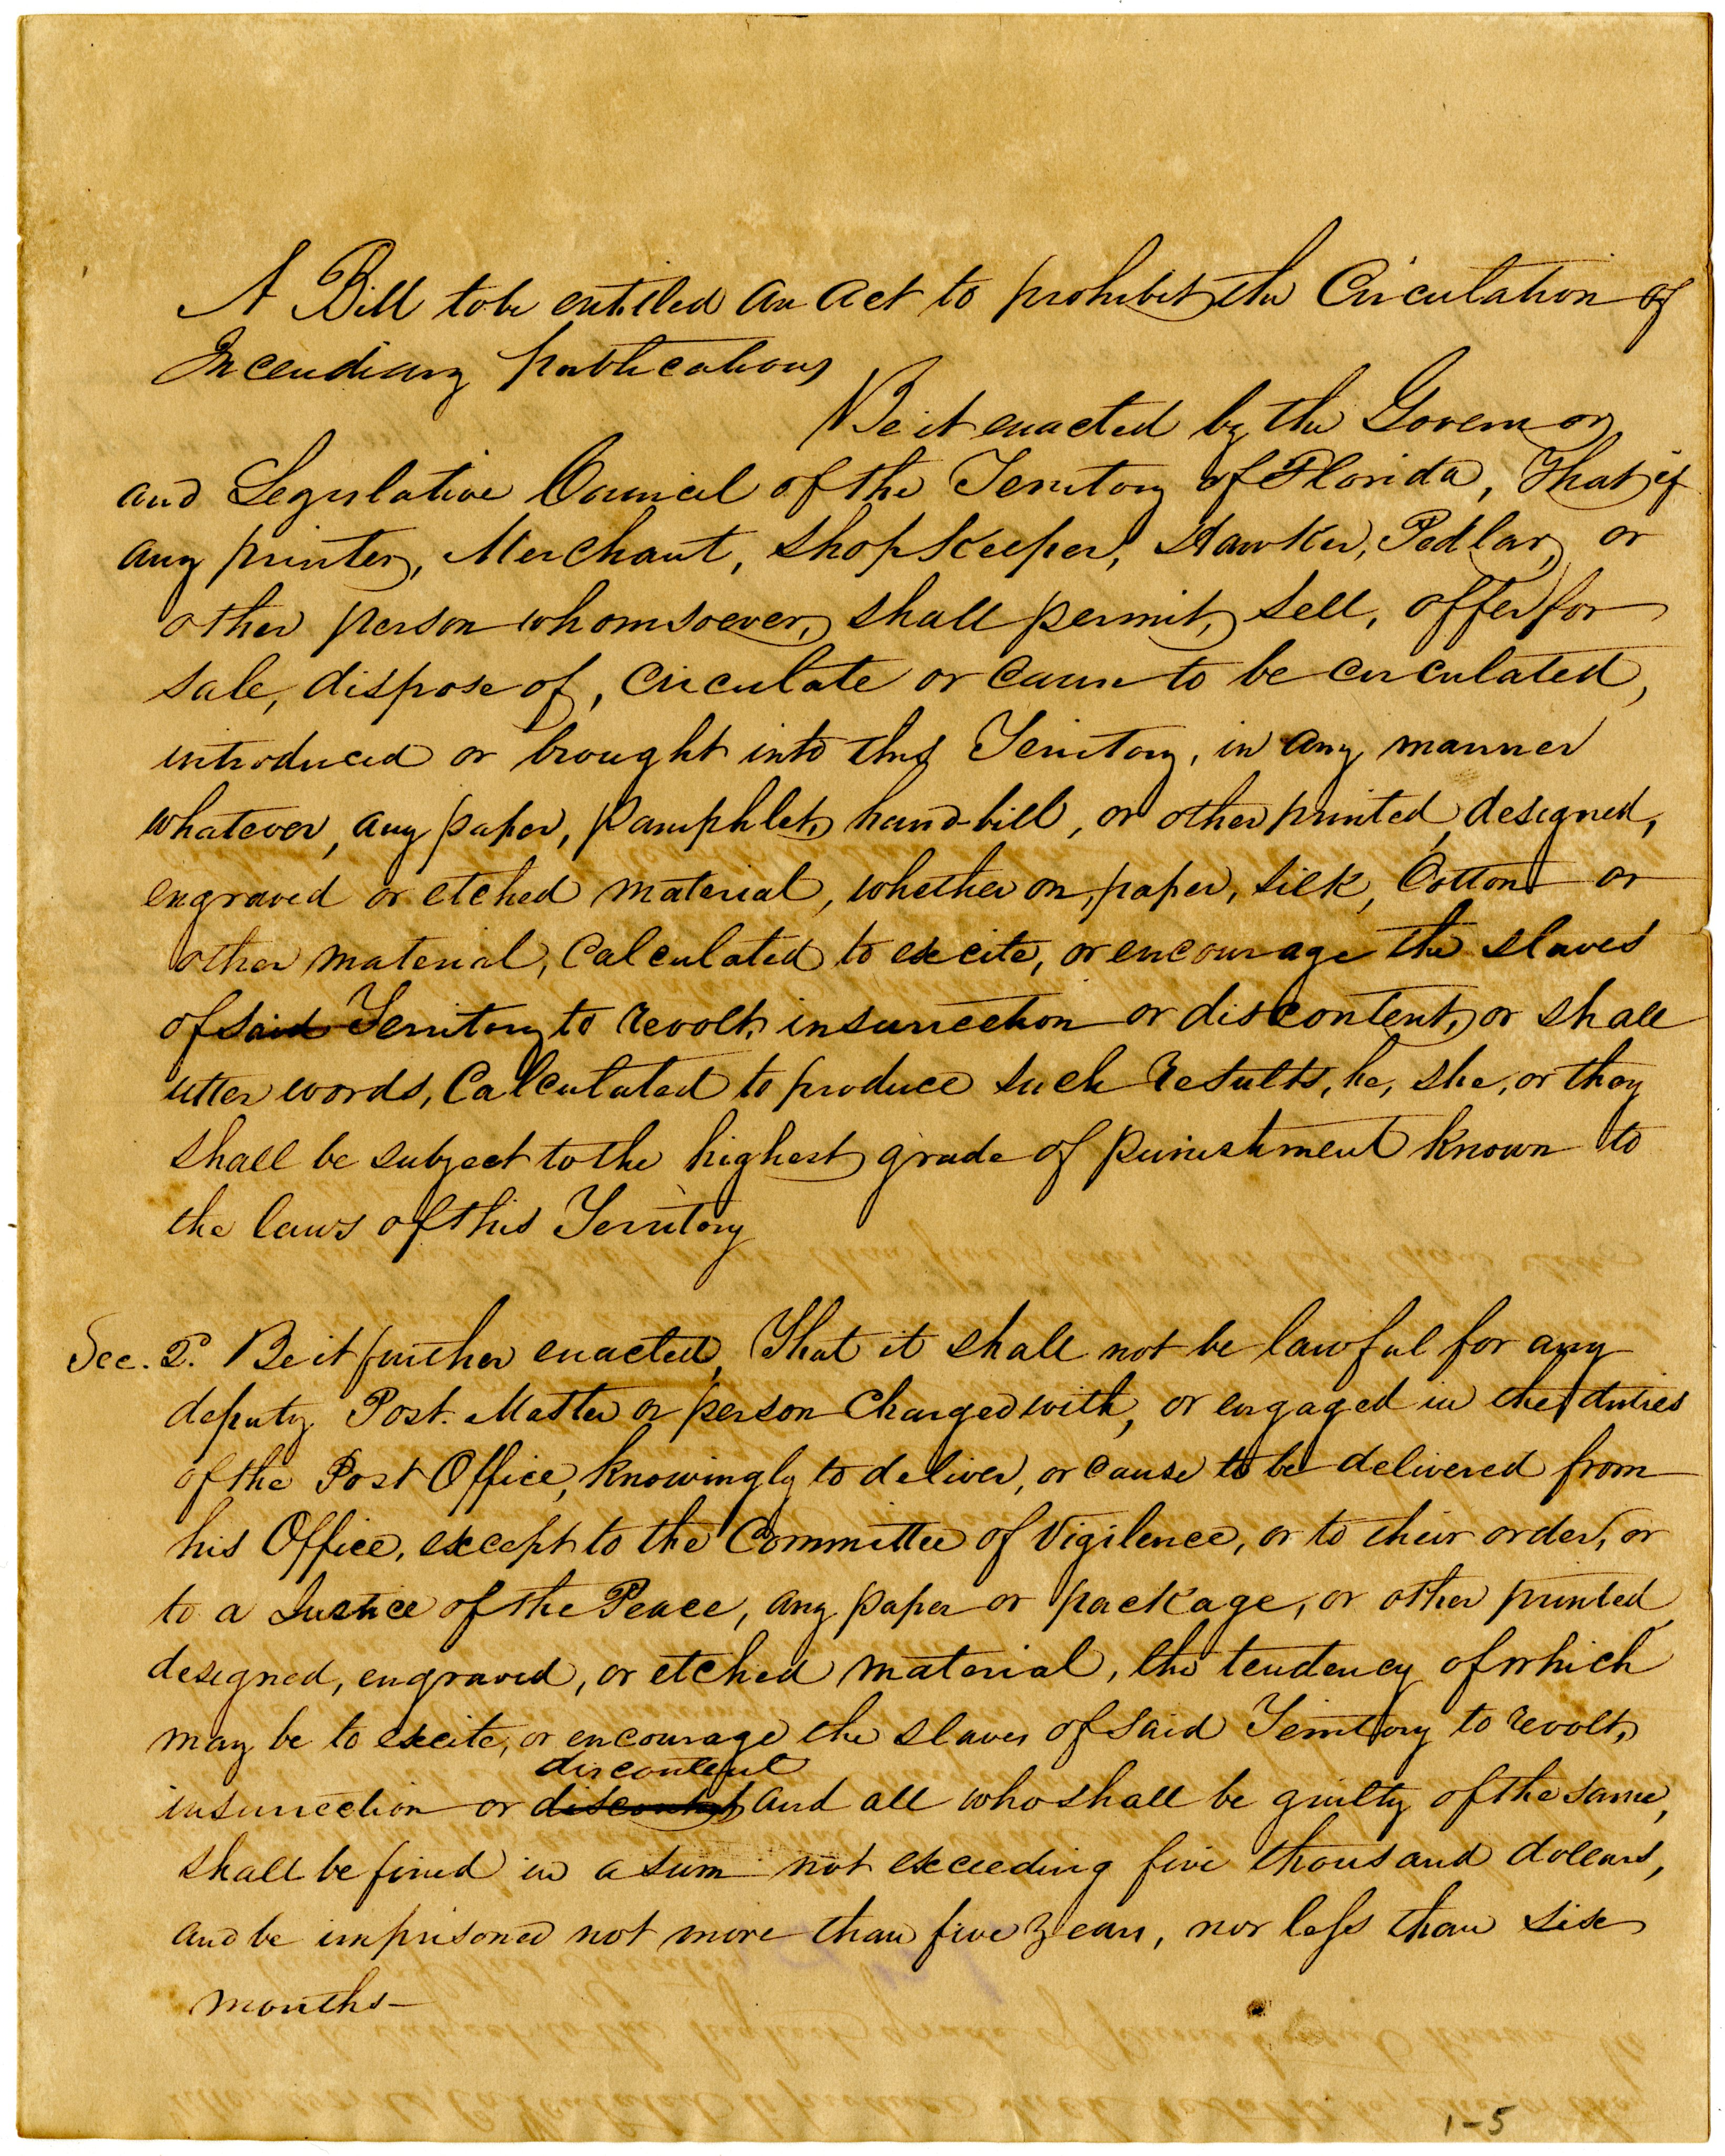 A Bill to be entitled an act to prohibit the Circulation of
Incendiary publications
Be it enacted by the Governor
and Legislative Council of the Territory of Florida, That if
any printer, Merchant, shopkeeper, Hawker, Pedlar, or
other person whomsoever, shall permit, sell, offer for
sale, dispose of, circulate or cause to be circulated,
introduced or brought into this Territory, in any manner
whatever, any paper, pamphlet, hand-bill, or other printed, designed,
engraved or etched material, whether on paper, silk, Cotton or
other material, Calculated to excite, or encourage the slaves
of said Territory to revolt, insurrection or discontent, or shall
utter words, Calculated to produce such results, he, she, or they
shall be subject to the highest grade of punishment known to
the laws of this Territory
Sec. 2. Be it further enacted, That it shall not be lawful for any
deputy Post. Master or person Charged with, or engaged in the duties
of the Post Office, knowingly to deliver, or cause to be delivered from
his Office, except to the Committee of Vigilence, or to their order, or
to a Justice of the Peace, any paper or package, or other printed,
designed, engraved, or etched material, the tendency of which
may be to excite, or encourage the slaves of said Territory to revolt,
discontent
insurrection or and all who shall be guilty of the same,
shall be fined in a sum not exceeding five thousand dollars,
and be imprisoned not more than five years, nor less than six
months—
1-5